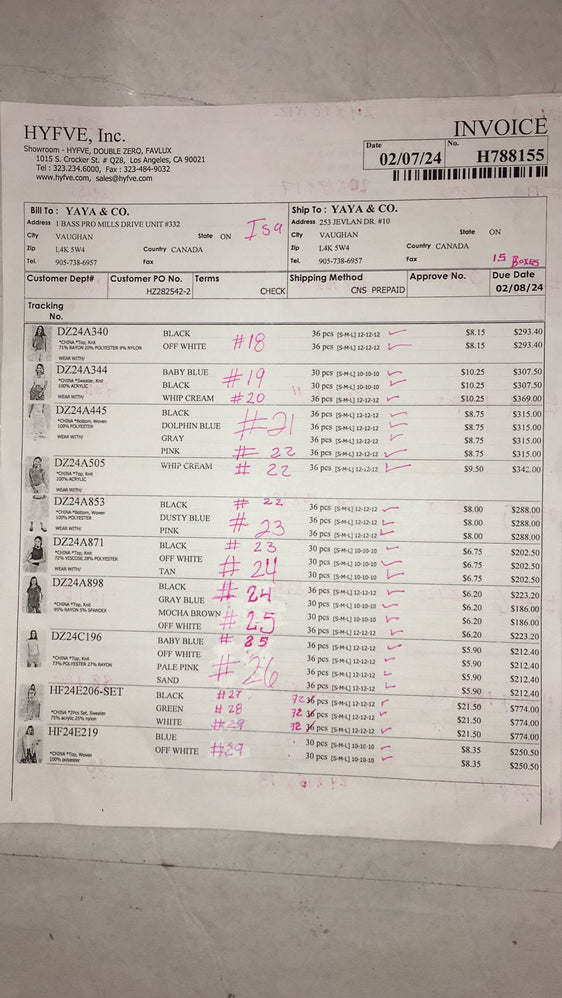 HYFVE, Inc.
Showroom - HYFVE, DOUBLE ZERO, FAVLUX
1015 S. Crocker St. # Q28, Los Angeles, CA 90021
Tel : 323.234.6000, Fax : 323-484-9032
www.hyfve.com, sales@hyfve.com
INVOICE
Date 02/07/24 No. H788155
Bill To : YAYA & CO.
Address 1 BASS PRO MILLS DRIVE UNIT #332
City VAUGHAN State ON
Zip L4K 5W4 Country CANADA
Tel. 905-738-6957 Fax
Isa
Ship To : YAYA & CO.
Address 253 JEVLAN DR. #10
City VAUGHAN State ON
Zip L4K 5W4 Country CANADA
Tel. 905-738-6957 Fax
15 BOXES
Customer Dept# Customer PO No. Terms Shipping Method Approve No. Due Date
HZ282542-2 CHECK CNS PREPAID 02/08/24
Tracking
No.
DZ24A340 BLACK 36 pcs [S-M-L] 12-12-12 $8.15 $293.40
*CHINA *Top, Knit OFF WHITE #18 36 pcs [S-M-L] 12-12-12 $8.15 $293.40
71% RAYON 20% POLYESTER 9% NYLON
WEAR WITH/
DZ24A344 BABY BLUE #19 30 pcs [S-M-L] 10-10-10 $10.25 $307.50
*CHINA *Sweater, Knit BLACK 30 pcs [S-M-L] 10-10-10 $10.25 $307.50
100% ACRYLIC
WEAR WITH/ WHIP CREAM #20 36 pcs [S-M-L] 12-12-12 $10.25 $369.00
DZ24A445 BLACK #21 36 pcs [S-M-L] 12-12-12 $8.75 $315.00
*CHINA *Bottom, Woven DOLPHIN BLUE 36 pcs [S-M-L] 12-12-12 $8.75 $315.00
100% POLYESTER GRAY 36 pcs [S-M-L] 12-12-12 $8.75 $315.00
WEAR WITH/ PINK # 22 36 pcs [S-M-L] 12-12-12 $8.75 $315.00
DZ24A505 WHIP CREAM # 22 36 pcs [S-M-L] 12-12-12 $9.50 $342.00
*CHINA *Top, Knit
100% ACRYLIC
WEAR WITH/
DZ24A853 BLACK # 22 36 pcs [S-M-L] 12-12-12 $8.00 $288.00
*CHINA *Bottom, Woven DUSTY BLUE # 23 36 pcs [S-M-L] 12-12-12 $8.00 $288.00
100% POLYESTER
WEAR WITH/ PINK 36 pcs [S-M-L] 12-12-12 $8.00 $288.00
DZ24A871 BLACK # 23 30 pcs [S-M-L] 10-10-10 $6.75 $202.50
*CHINA *Top, Knit OFF WHITE # 24 30 pcs [S-M-L] 10-10-10 $6.75 $202.50
72% VISCOSE 28% POLYESTER
WEAR WITH/ TAN 30 pcs [S-M-L] 10-10-10 $6.75 $202.50
DZ24A898 BLACK # 24 36 pcs [S-M-L] 12-12-12 $6.20 $223.20
GRAY BLUE 30 pcs [S-M-L] 10-10-10 $6.20 $186.00
*CHINA *Top, Knit MOCHA BROWN # 25 30 pcs [S-M-L] 10-10-10 $6.20 $186.00
95% RAYON 5% SPANDEX OFF WHITE 36 pcs [S-M-L] 12-12-12 $6.20 $223.20
DZ24C196 BABY BLUE # 25 36 pcs [S-M-L] 12-12-12 $5.90 $212.40
OFF WHITE #26 36 pcs [S-M-L] 12-12-12 $5.90 $212.40
*CHINA *Top, Knit PALE PINK 36 pcs [S-M-L] 12-12-12 $5.90 $212.40
73% POLYESTER 27% RAYON SAND 36 pcs [S-M-L] 12-12-12 $5.90 $212.40
HF24E206-SET BLACK #27 72 36 pcs [S-M-L] 12-12-12 $21.50 $774.00
*CHINA *2Pcs Set, Sweater GREEN # 28 72 36 pcs [S-M-L] 12-12-12 $21.50 $774.00
75% acrylic 25% nylon WHITE #29 72 36 pcs [S-M-L] 12-12-12 $21.50 $774.00
HF24E219 BLUE 30 pcs [S-M-L] 10-10-10 $8.35 $250.50
*CHINA *Top, Woven OFF WHITE #29 30 pcs [S-M-L] 10-10-10 $8.35 $250.50
100% polyester